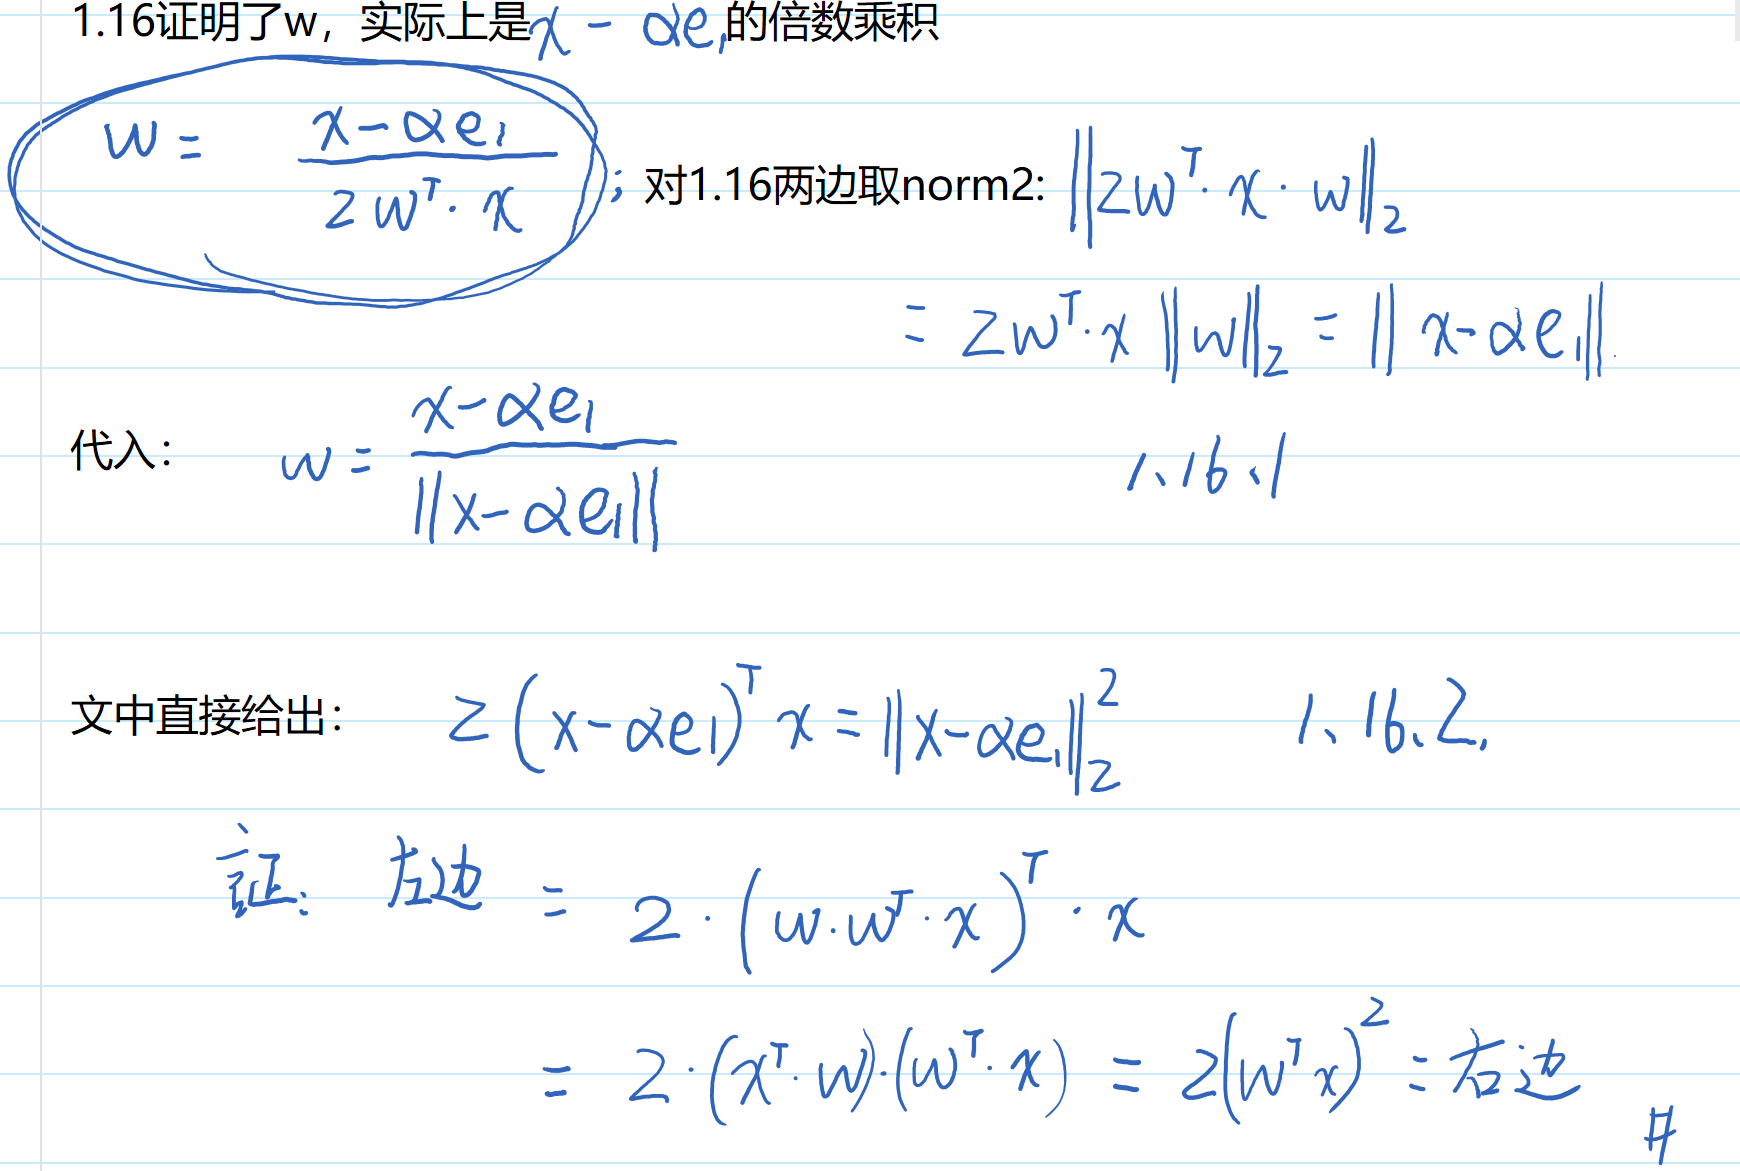 1.16证明了w，实际上是x - αe₁的倍数乘积
w = (x - αe₁) / (2wᵀ·x) ; 对1.16两边取norm2: ||2wᵀ·x·w||₂
= 2wᵀ·x ||w||₂ = ||x - αe₁||.
代入： w = (x - αe₁) / ||x - αe₁|| 1、16、1
文中直接给出： 2(x - αe₁)ᵀ x = ||x - αe₁||₂² 1、16、2.
证: 左边 = 2·(w·wᵀ·x)ᵀ·x
= 2·(xᵀ·w)·(wᵀ·x) = 2(wᵀx)² = 右边
#